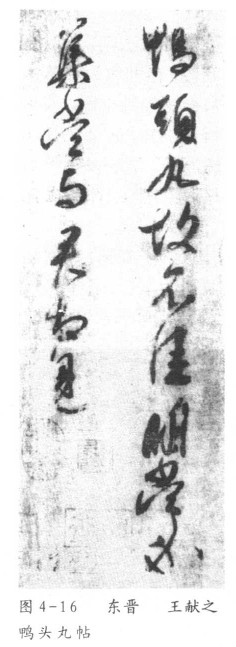 鸭頭丸故不佳明當必
集當與君相見
图4-16 东晋 王献之
鸭头丸帖